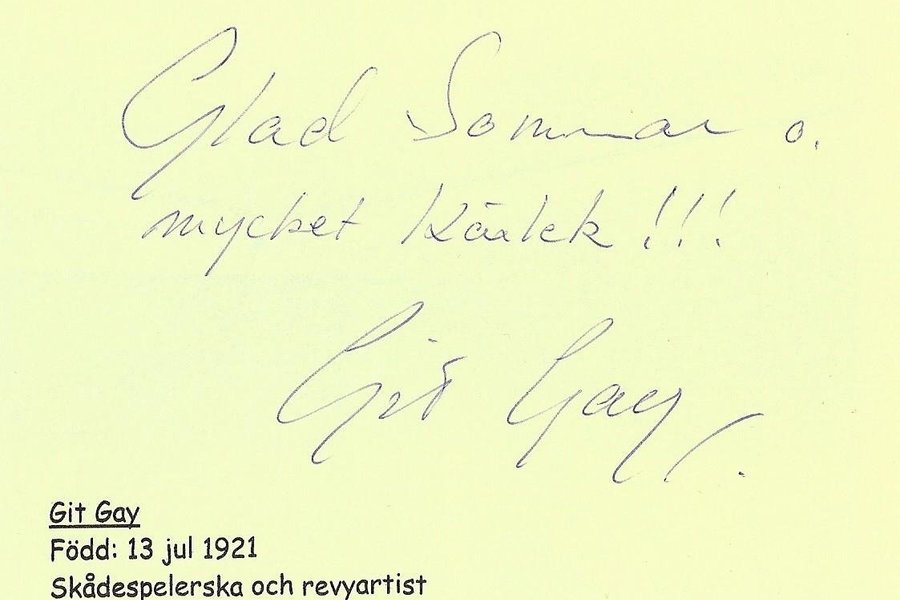 Glad Sommar o.
mycket Kärlek !!!
Git Gay
Git Gay
Född: 13 jul 1921
Skådespelerska och revyartist